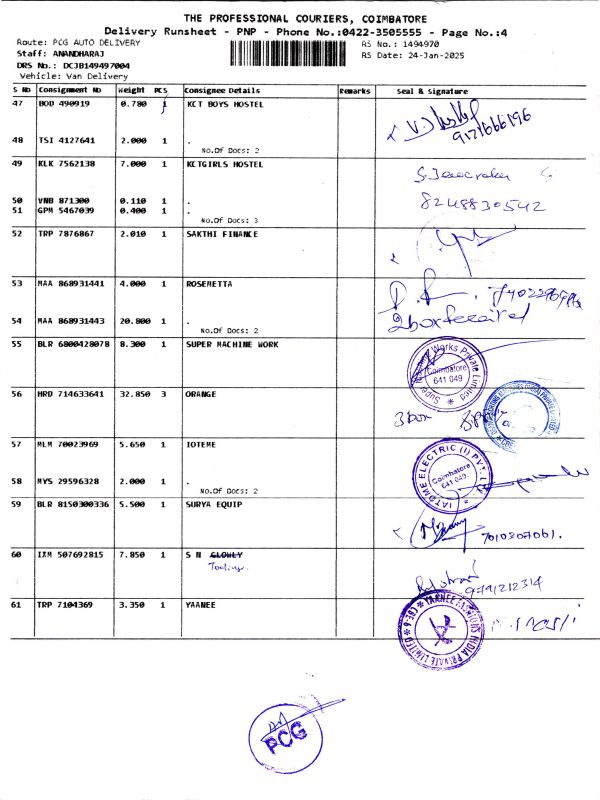 THE PROFESSIONAL COURIERS, COIMBATORE
Delivery Runsheet - PNP - Phone No.:0422-3505555 - Page No.:4
Route: PCG AUTO DELIVERY
RS No.: 1494970
Staff: ANANDHARAJ
RS Date: 24-Jan-2025
DRS No.: DCJB149497004
Vehicle: Van Delivery
S No Consignment No Weight PCS Consignee Details Remarks Seal & Signature
47 BOD 490919 0.780 1 KCT BOYS HOSTEL
48 TSI 4127641 2.000 1 .
No.Of Docs: 2
49 KLK 7562138 7.000 1 KCTGIRLS HOSTEL
50 VNB 871300 0.110 1 .
8248830542
51 GPM 5467039 0.400 1 .
No.Of Docs: 3
52 TRP 7876867 2.010 1 SAKTHI FINANCE
53 MAA 868931441 4.000 1 ROSEMETTA
54 MAA 868931443 20.800 1 .
2box received
No.Of Docs: 2
55 BLR 6800428078 8.300 1 SUPER MACHINE WORK
Super Works Private Limited
Coimbatore
641 049
56 HRD 714633641 32.850 3 ORANGE
3 box
57 MLM 70023969 5.650 1 IOTEME
IATOME ELECTRIC (I) PVT. LTD
Coimbatore
641 049.
58 MYS 29596328 2.000 1 .
No.Of Docs: 2
59 BLR 8150300336 5.500 1 SURYA EQUIP
7010307061.
60 IXM 507692815 7.850 1 S N GLOWLY
Tooling.
9791212314
61 TRP 7104369 3.350 1 YAANEE
YAANEE FASHIONS INDIA PRIVATE LIMITED * CBE-6 *
PCG